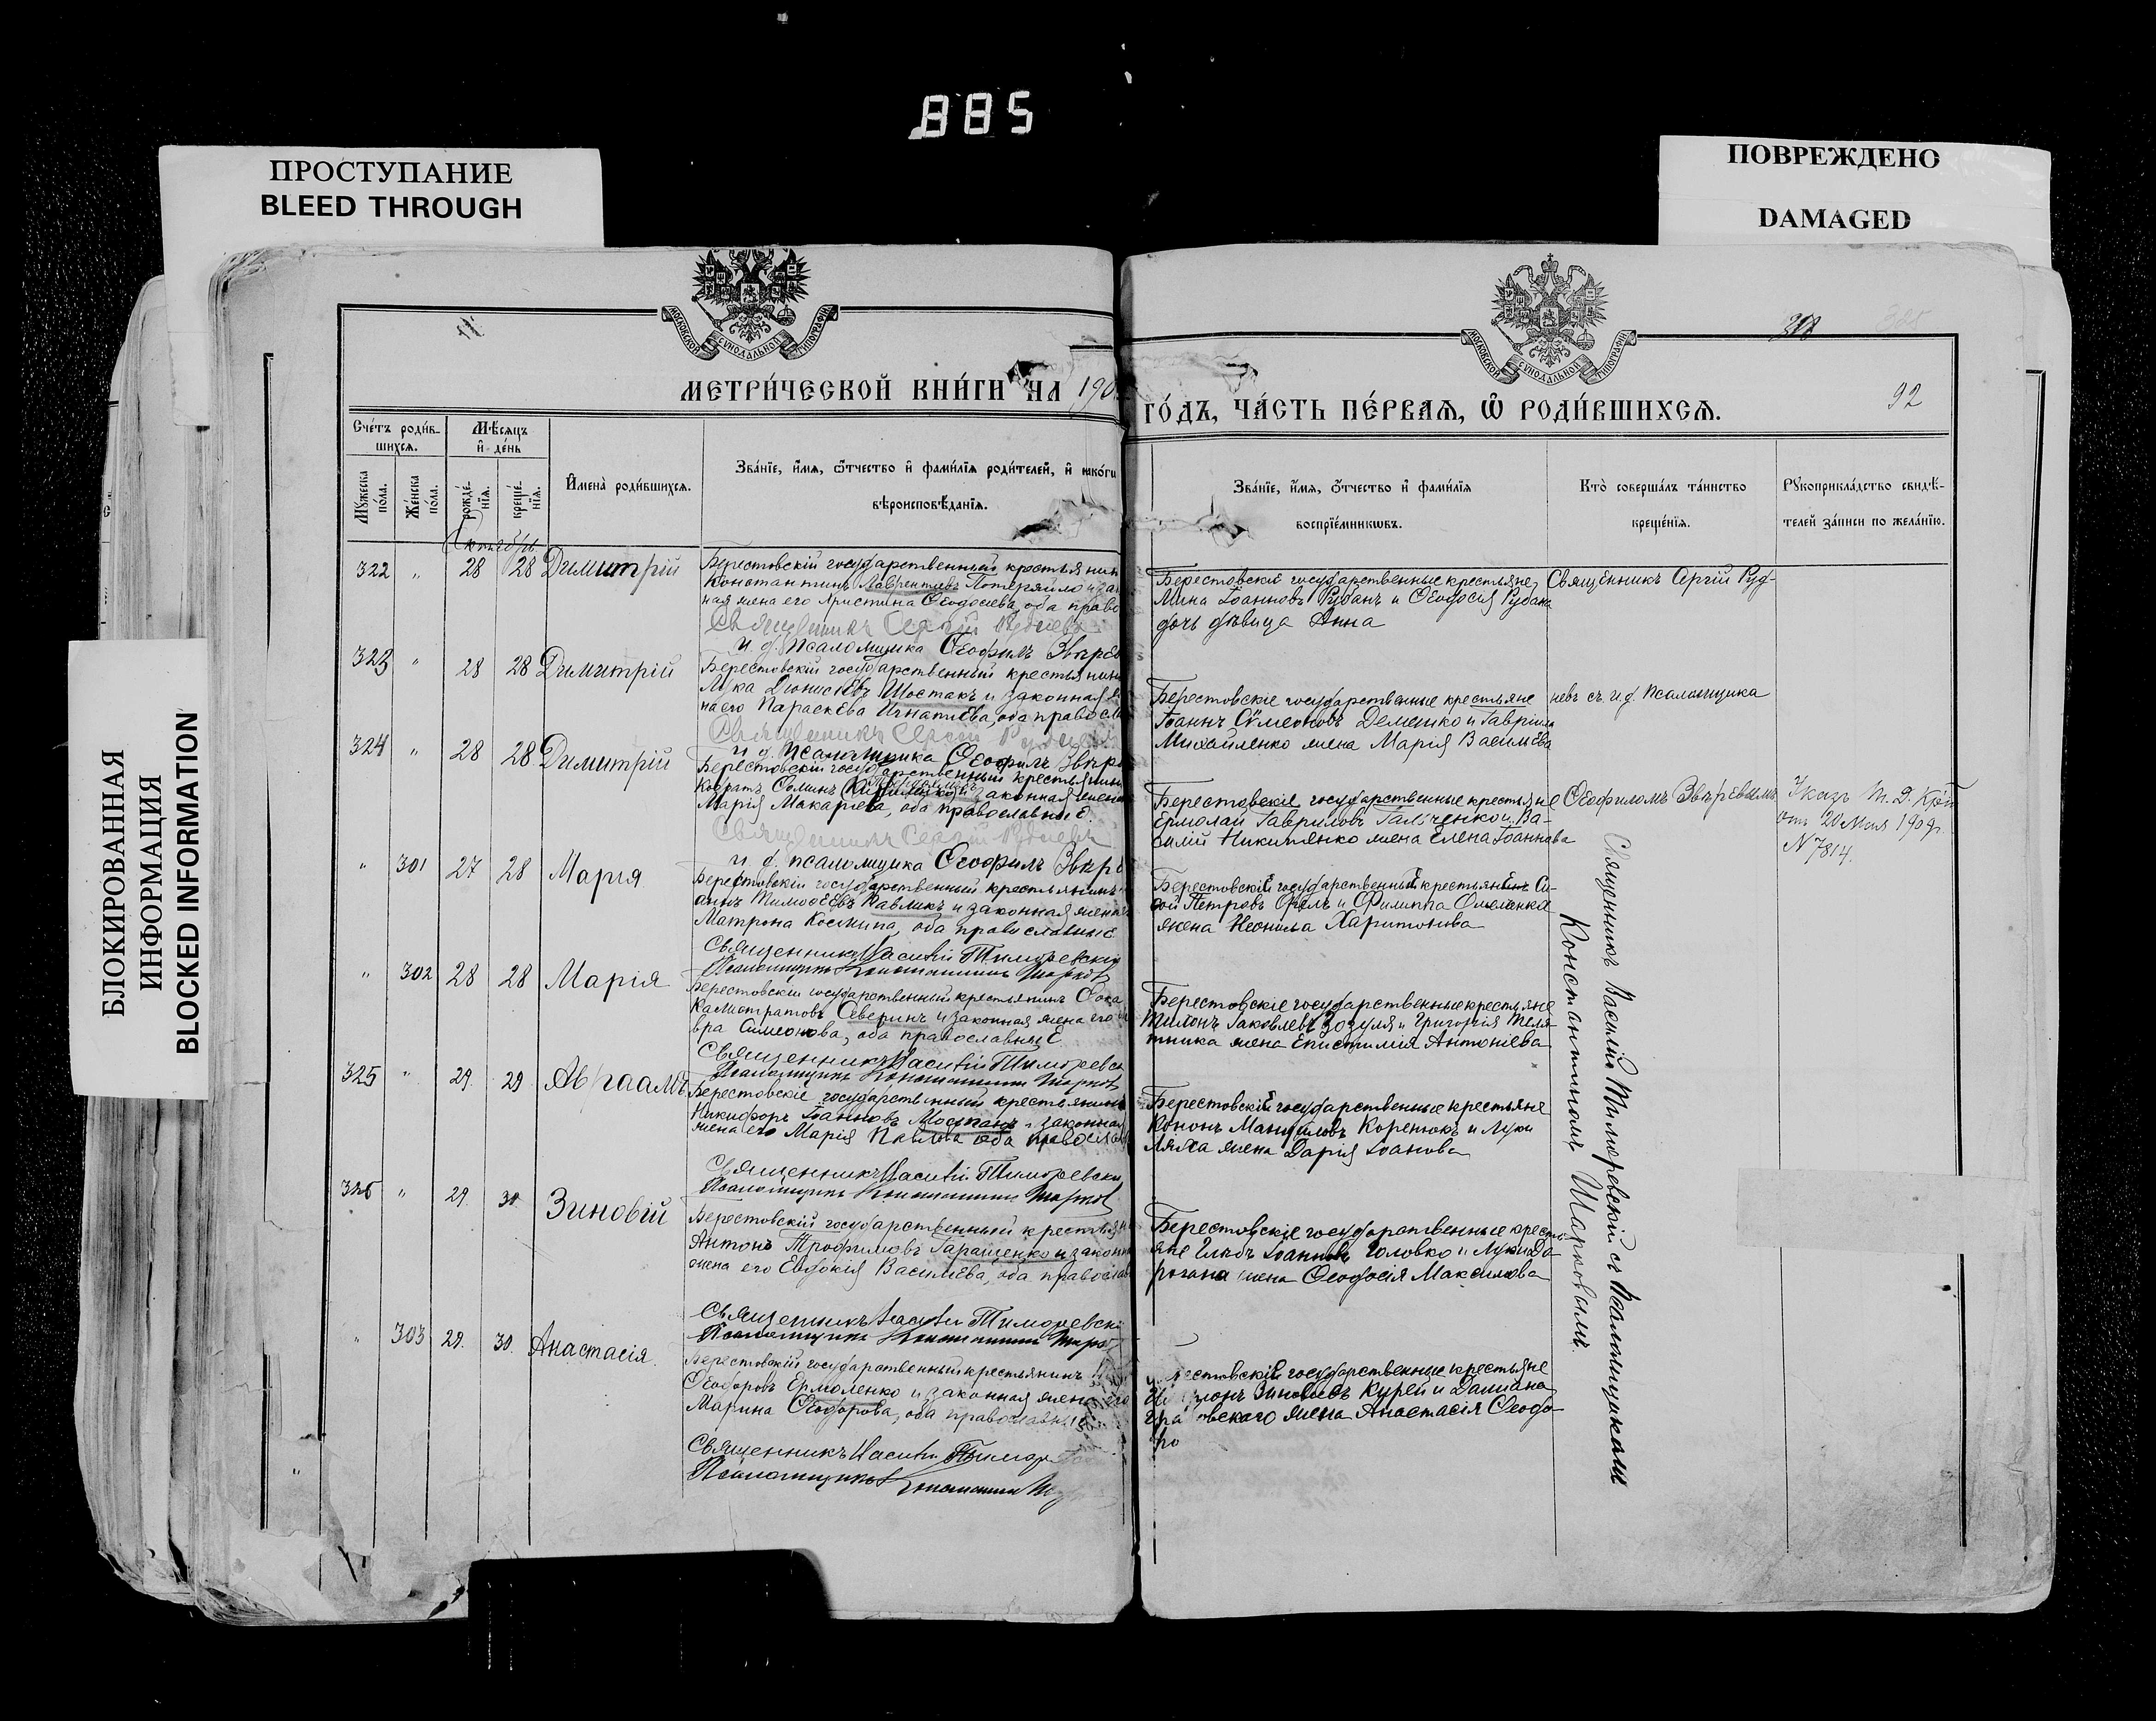 885
ПРОСТУПАНИЕ
BLEED THROUGH
ПОВРЕЖДЕНО
DAMAGED
БЛОКИРОВАННАЯ
ИНФОРМАЦИЯ
BLOCKED INFORMATION
МОСКОВСКОЙ СѴНОДАЛЬНОЙ ТИПОГРАФІИ
МОСКОВСКОЙ СѴНОДАЛЬНОЙ ТИПОГРАФІИ
92
МЕТРИ́ЧЕСКОЙ КНИ́ГИ НА 190
ГО́ДЪ, ЧА́СТЬ ПЕ́РВАЯ, Ѿ РОДИ́ВШИХСЯ.
Сче́тъ роди́в-
шихся.
Мѣ́сяцъ
и҆ де́нь
Мꙋжеска
по́ла.
Же́нска
по́ла.
рожде́-
нїя.
креще́-
нїя.
И҆мена̀ роди́вшихся.
Зва́нїе, и҆́мя, ѻ҆́тчество и҆ фами́лїя роди́телей, и҆ како́гѡ
вѣроисповѣ́данїя.
Зва́нїе, и҆́мя, ѻ҆́тчество и҆ фами́лїя
воспрїе́мникѡвъ.
Кто̀ соверша́лъ та́инство
креще́нїя.
Рꙋкоприкла́дство свидѣ́-
телей за́писи по жела́нїю.
Октябрь
322 " 28 28 Димитрій
Берестовскій государственный крестьянин
Константинъ Лаврентіевъ Потеряйло и за
ная жена его Христина Ѳеодосіева, оба право
Священникъ Сергій Рудневъ
и. д. Псаломщика Ѳеофилъ Звѣрев
Берестовскіе государственные крестьяне
Мина Іоанновъ Рубанъ и Ѳеодосія Рубана
дочь дѣвица Анна
Священникъ Сергій Руд-
323 " 28 28 Димитрій
Берестовскій государственный крестьянин
Лука Діонисіевъ Шостакъ и законная ж
на его Параскева Игнатіева, оба православ
Священникъ Сергій Руднев
и. д. Псаломщика Ѳеофилъ Звѣре
Берестовскіе государственные крестьяне
Іоаннъ Сѵмеоновъ Демешко и Гавріила
Михайленко жена Марія Васильева
невъ съ и. д. Псаломщика
324 " 28 28 Димитрій
Берестовскій государственный крестьянин
Кодратъ Ѳоминъ законная жена
Марія Макаріева, оба православные.
Священникъ Сергій Рудневъ
и. д. псаломщика Ѳеофилъ Звѣре
Берестовскіе государственные крестьяне
Ермолай Гавриловъ Гальченко и Ва-
силій Никитенко жена Елена Іоаннова
Ѳеофиломъ Звѣревымъ
Указъ Т. Д. К
отъ 20 Мая 1909г.
№ 7814.
" 301 27 28 Марія
Берестовскій государственный крестьянинъ
аннъ Тимоѳеевъ Павликъ и законная жена
Матрона Космина, оба православные
Священникъ Василій Тиморевскій
Псаломщикъ Константинъ Шарков
Берестовскій государственный крестьянинъ Си-
сой Петровъ Орелъ и Филиппа Омелянка
жена Неонила Харитонова
" 302 28 28 Марія
Берестовскій государственный крестьянинъ Ѳока
Калистратовъ Северинъ и законная жена его
вра Симеонова, оба православные
Священникъ Василій Тиморевск
Псаломщикъ Константинъ Шарков
Берестовскіе государственные крестьяне
Тихонъ Іаковлевъ Зозуля и Григорія Теля-
тника жена Епистимія Антоніева
325 " 29 29 Авраамъ
Берестовскіе государственный крестьянин
Никифоръ Іоанновъ Мостанъ и законная
жена его Марія Павлова оба правосла
Священникъ Василій Тиморевски
Псаломщикъ Константинъ Шарков
Берестовскій государственные крестьяне
Кононъ Мануиловъ Коренюкъ и Луки
Ляха жена Дарія Іоанова
326 " 29 30 Зиновій
Берестовскій государственный крестьян
Антонъ Трофимовъ Гаращенко и законн
жена его Евдокія Васильева, оба православ
Священникъ Василій Тиморевскі
Псаломщикъ Константинъ Шарков
Берестовскіе государственные кресть-
яне Глѣбъ Іоанновъ Головко и Луки До-
рогана жена Ѳеодосія Максимова
" 303 29. 30. Анастасія.
Берестовскій государственный крестьянинъ
Ѳеодоровъ Ермоленко и законная жена его
Марина Ѳеодорова, оба православные
Священникъ Василій Тимор
Псаломщикъ Константинъ
естовскій государственные крестьяне
Зиновіевъ Курей и Даміана
овскаго жена Анастасія Ѳеодо-
ро
Священникъ Василій Тиморевскій съ Псаломщикомъ
Константиномъ Шарковымъ.